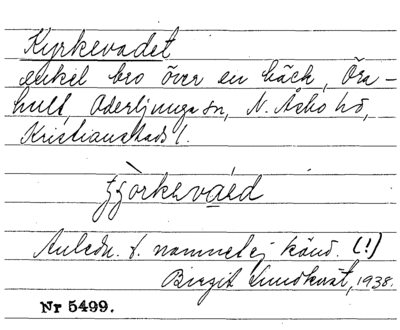 Kyrkevadet
enkel bro över en bäck, Öra-
hult Oderljunga sn, N. Åsbo hd,
Kristianstads l.
Anledn. t. namnet ej känd. (!)
Birgit Lundkvist, 1938.
Nr 5499.